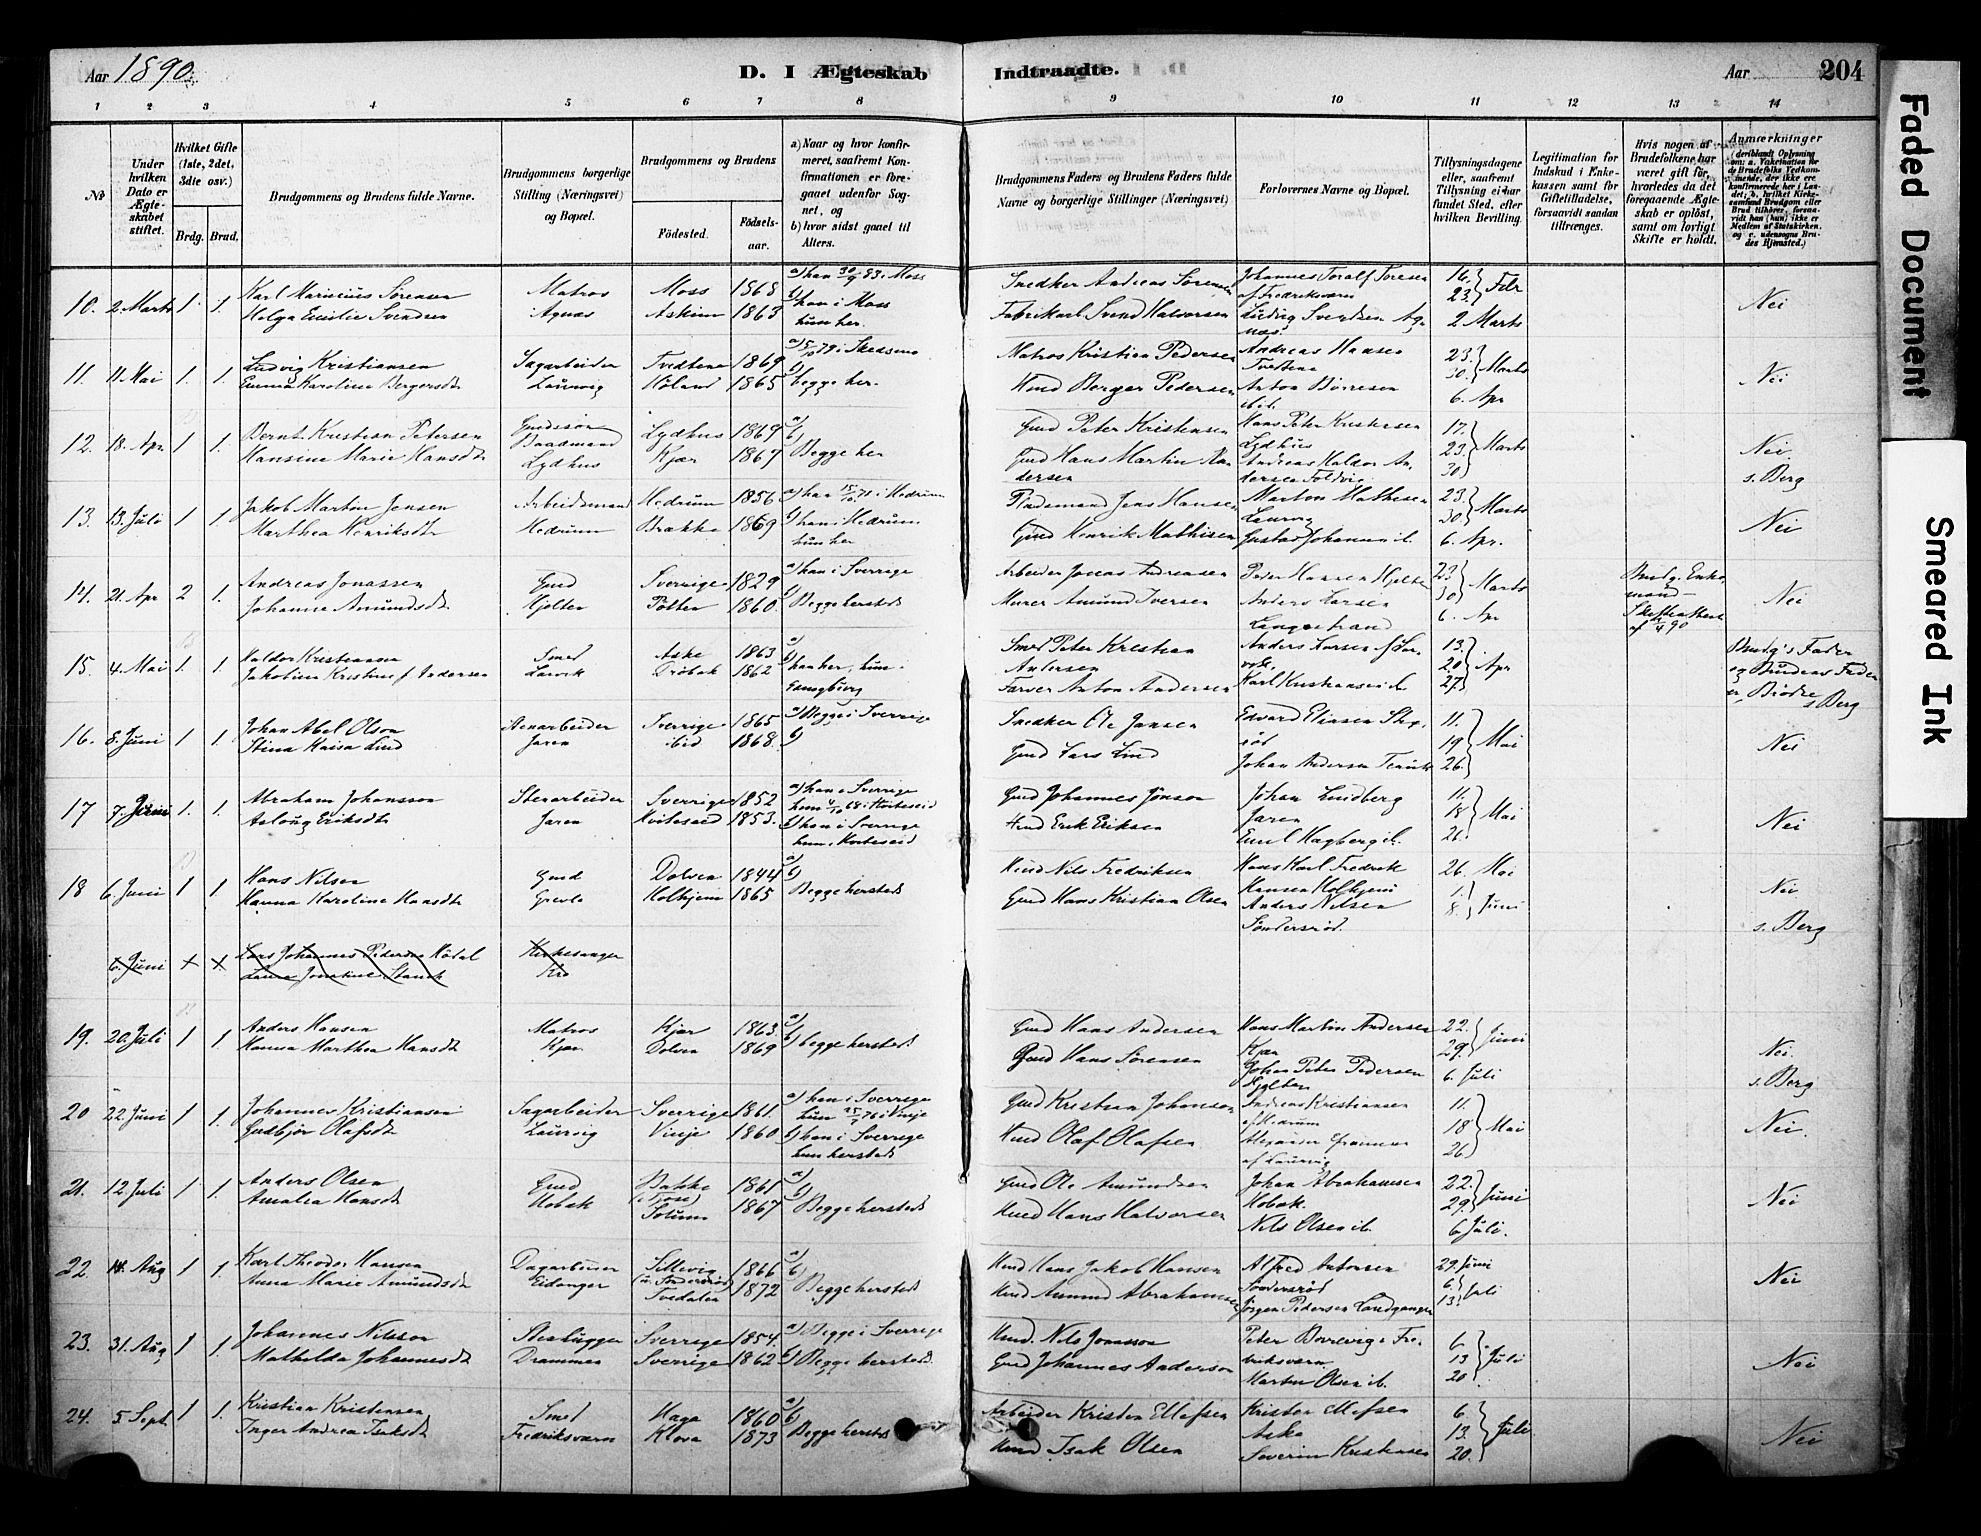 Aar 1890.
D. I Ægteskab
Indtraadte.
Aar
204
1 2 3 4 5 6 7 8 9 10 11 12 13 14
№
Under hvilken Dato er Ægteskabet stiftet.
Hvilket Gifte (1ste, 2det, 3die osv.)
Brdg. Brud.
Brudgommens og Brudens fulde Navne.
Brudgommens borgerlige Stilling (Næringsvei) og Bopæl.
Brudgommens og Brudens
Fødested.
Fødselsaar.
a) Naar og hvor konfirmeret, saafremt Konfirmationen er foregaaet udenfor Sognet, og
b) hvor sidst gaaet til Alters.
Brudgommens Faders og Brudens Faders fulde Navne og borgerlige Stillinger (Næringsvei)
Forlovernes Navne og Bopæl.
Tillysningsdagene eller, saafremt Tillysning ei har fundet Sted, efter hvilken Bevilling.
Legitimation for Indskud i Enkekassen samt for Giftetilladelse, forsaavidt saadan tiltrænges.
Hvis nogen af Brudefolkene har været gift før, hvorledes da det foregaaende Ægteskab er opløst, samt om lovligt Skifte er holdt.
Anmærkninger
10. 2 Marts 1. 1. Karl Marinius Sørensen Matros Moss 1868 a) han 30/9 83 i Moss Snedker Andreas Sørensen Johannes Toralf Toresen af Fredriksværn 16. 23. Febr
Helga Emilie Svendsen Agnæs Askim 1863 b) han i Moss hun her. Fabrikarb. Svend Halvorsen Ludvig Svendsen Agnæs 2 Marts Nei
11. 11 Mai 1. 1. Ludvig Kristiansen Sagarbeider Tvedtene 1869 a) 5/10 79 i Skedsmo Matros Kristian Pedersen Andreas Hansen Tvetene 23. 30. Marts
Emma Karoline Bergersdt Laurvig Høland 1865 b) begge her Hmd Berger Pedersen Anton Børresen ibid. 6. Apr Nei
12. 18. Apr 1 1. Bernt Kristian Petersen Gmdssøn Baadsmand 1869 a) b) Gmd Peter Kristensen Hans Peter Kristensen Lydhus 17. 23. 30. Marts
Hansine Marie Hansdt Lydhus Kjær 1867 Begge her Gmd Hans Martin Andersen Nei. s. Berg
13. 13. Juli 1 1. Jakob Martin Jensen Arbeidsmand Hedrum 1856 a) han 15/10 71 i Hedrum Pladsmand Jens Hansen Marton Mathisen Laurvig 23. 30. Marts
Marthea Henriksdt Hedrum Brække 1869 b) han i Hedrum hun her Gmd Henrik Mathisen Gustav Johansen ib. 6. Apr. Nei
14. 21. Apr 2 1. Andreas Jonassen Gmd Sverrige 1829 a) han i Sverrige Arbeider Jonas Andreasen Peder Hansen Hjelten 23. 30. Marts
Johanne Amundsdt Hjelten 1860. b) Begge hersteds Murer Amund Iversen Anders Larsen Langestrand 6. Apr Brudg. Enkemand Nei
15. 4. Mai 1. 1. Haldor Kristiansen Smed Aske 1863 a) Smed Peter Kristian Andersen 13. 20 27. Apr
Jakobine Kristine f Andersen Larvik Drøbak 1862 b) han her, hun Farver Anton Andersen Karl Kristiansen ib Brudg's Fader og Brudens Fader er Brødre s. Berg
16. 8. Juni 1 1. Johan Abel Olson Stenarbeider Sverrige 1865 a) Begge i Sverrige Snedker Ole Jansen Edvard Eliasen 11. 19 26. Mai
Stina Kaisa Lind Jaren ibid 1868. b) Gmd Lars Lind Johan Andersen Nei
17 7. Juni 1. 1. Abraham Johansson Stenarbeider Sverrige 1852 a) han i Sverrige hun 4/10 68 i Kviteseid Gmd Johannes Jönson Johan Lindberg Jaren 11. 18 26. Mai
Aslaug Eriksdt Jaren Kviteseid 1853. b) han i Sverrige hun i Kviteseid Hmd Erik Eriksen Emil Hagberg ib. Nei
18 6. Juni 1 1 Hans Nilsen Gmd Dolven 1844 a) b) Hmd Nils Fredriksen Hans Karl Fredrik Hansen Holhjem 26. Mai
Hanna Karoline Hansdt Grevle Holhjem 1865 Begge hersteds Gmd Hans Kristian Olsen Anders Nilsen Søndersrød. 1. 8. Juni Nei s. Berg
6. Juni Lars Johannes Pedersen Kirkesanger
19. 20. Juli 1 1. Anders Hansen Matros Kjær 1863 a) Gmd Hans Andersen Hans Martin Andersen Kjær 22. 29. Juni
Hanna Marthea Hansdt Kjær Dolven 1869 b) begge hersteds Gmd Hans Sørensen Johan Peter Pedersen 6. Juli Nei. s. Berg
20 22. Juni 1 1. Johannes Kristiansen Sagarbeider Sverrige 1861. a) han i Sverrige hun 25/7 76 i Vinje Gmd Kristian Johanson Andreas Kristiansen af Hedrum 11. 18 26 Mai
Gudbjør Olafsdt Laurvig Vinje 1860 b) han i Sverrige hun hersteds Hmd Olaf Olafsen af Laurvig Nei.
21. 12. Juli 1. 1. Anders Olsen Gmd Bakke 1861 a) b) Gmd Ole Amundsen Johan Abrahamsen Hobæk. 22. 29. Juni
Amalia Hansdt Hobæk Solum 1867 Begge hersteds Hmd Hans Halvorsen Nils Olsen ib. 6 Juli. Nei
22. 14. Aug 1 1. Karl Theodor Hansen Dagarbeider Sillevig 1866 a) b) Hmd Hans Jakob Hansen Alfred Antonsen Søndersrød 29. Juni
Anna Marie Amundsdt Eidanger Tvedalen 1872 Begge hersteds Hmd Amund Abrahamsen Jørgen Pedersen Landganger 6. 13. Juli Nei
23. 31. Aug 1 1. Johannes Nilsson Stenhugger Sverrige 1854. a) Begge i Sverrige Hmd. Nils Jonasson Peter Borrevig Fredriksværn 6. 13 20 Juli
Mathilda Johannesdt Drammen Sverrige 1862 b) Begge hersteds. Gmd Johannes Anderson Martin Olsen ib. Nei
24. 5 Sept. 1 1. Kristian Kristensen Smed Haga 1860 a) b) Arbeider Kristen Ellefsen Kristen Ellefsen Aske 6. 13. 20. Juli
Inger Andrea Isaksdt Fredriksværn Klova 1873 Begge hersteds Hmd Isak Olsen Severin Kristensen Nei
Faded Document
Smeared Ink